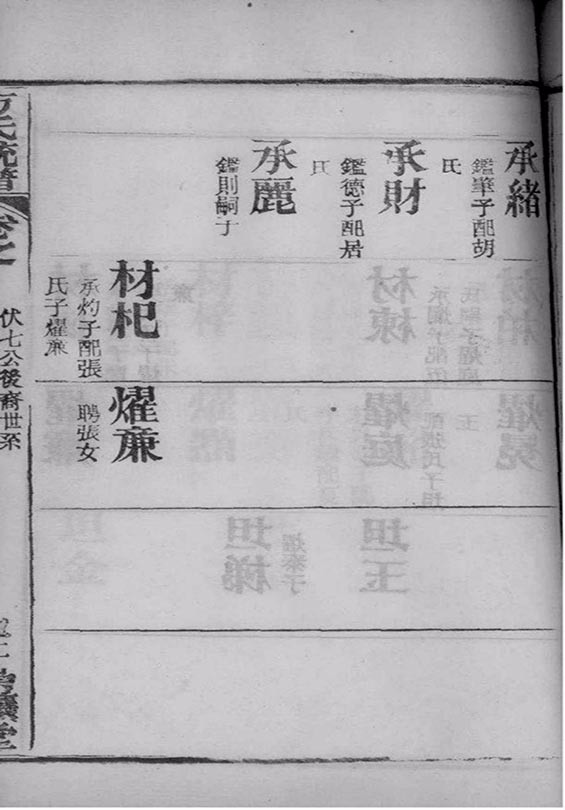 承緖
鑑肇子配胡
氏
承財
鑑德子配居
氏
承麗
鑑則嗣子
材杞
承灼子配張
氏子燿亷
燿亷
聘張女
方氏統譜
卷之
伏七公後裔世系